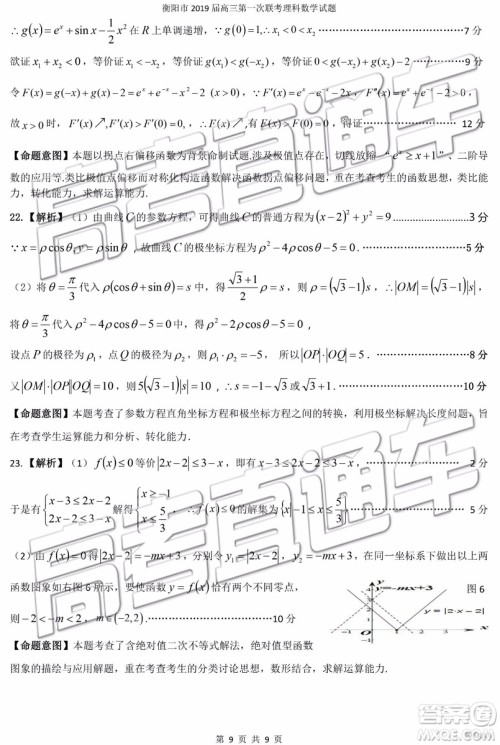 衡阳市 2019 届高三第一次联考理科数学试题
∴g(x)=e^x+sin x−\frac{1}{2}x^2 在 R 上单调递增，∵g(0)=1,∴x_1<0<x_2 ···7 分
欲证 x_1+x_2<0，等价 x_1<−x_2<0，等价 g(x_1)<g(−x_2)，等价 g(x_2)+g(−x_2)>2 ···9 分
故 x>0 时，F'(x)↗,F'(x)>F'(0)=0,,∴F(x)↗,∴有 F(x)>F(0)=0，得证 ···12 分
【命题意图】本题以拐点右偏移函数为背景命制试题,涉及极值点存在、切线放缩 “e^x≥x+1”、二阶导
数的应用等.类比极值点偏移而对称化构造函数解决函数拐点偏移问题，旨在考查考生的知识迁移能
力，转化能力，求解运算能力.
22.【解析】（1）由曲线 C 的参数方程，可得曲线 C 的普通方程为 (x−2)^2+y^2=9 ···3 分
∵x=ρcosθ,y=ρsinθ，故曲线 C 的极坐标方程为 ρ^2−4ρcosθ−5=0. ···5 分
（2）将 θ=\frac{π}{3} 代入 ρ(cosθ+sinθ)=s 得，\frac{\sqrt{3}+1}{2}ρ=s，则 ρ=(\sqrt{3}−1)s，∴|OM|=(\sqrt{3}−1)|s|，
将 θ=\frac{π}{3} 代入 ρ^2−4ρcosθ−5=0，
设点 P 的极径为 ρ_1，点 Q 的极径为 ρ_2，则 ρ_1ρ_2=−5，所以|OP|·|OQ|=5. ···8 分
又|OM|·|OP||OQ|=10，则 5(\sqrt{3}−1)|s|=10，∴s=−1−\sqrt{3} 或 \sqrt{3}+1. ···10 分
【命题意图】本题考查了参数方程直角坐标方程与极坐标方程之间的转换，利用极坐标求弦长问题，
旨在考查学生运算能力和分析、转化能力.
23.【解析】（1）f(x)≤0 等价 |2x−2|≤3−x，即 x−3≤2x−2≤3−x，
于是有 {x−3≤2x−2 2x−2≤3−x 解得 {x≥−1 x≤\frac{5}{3}，∴f(x)≤0 的解集为 {x|−1≤x≤\frac{5}{3}}. ···5 分
（2）由 f(x)=0 得 |2x−2|=−mx+3，分别令 y_1=|2x−2|，y_2=−mx+3，在同一坐标系上作出以上两
函数图象如右图 6 所示，要使函数 y=f(x) 恰有两个不同零点，
则 −2<−m<2，m∈(−2,2). ···10 分
图 6
y=−mx+3
y=|2·x−2|
【命题意图】本题考查了含绝对值二次不等式解法，绝对值型函数
图象的描绘与应用解题，重在考查考生的分类讨论思想，数形结合，求解能力.
第 9 页 共 9 页
高考直通车